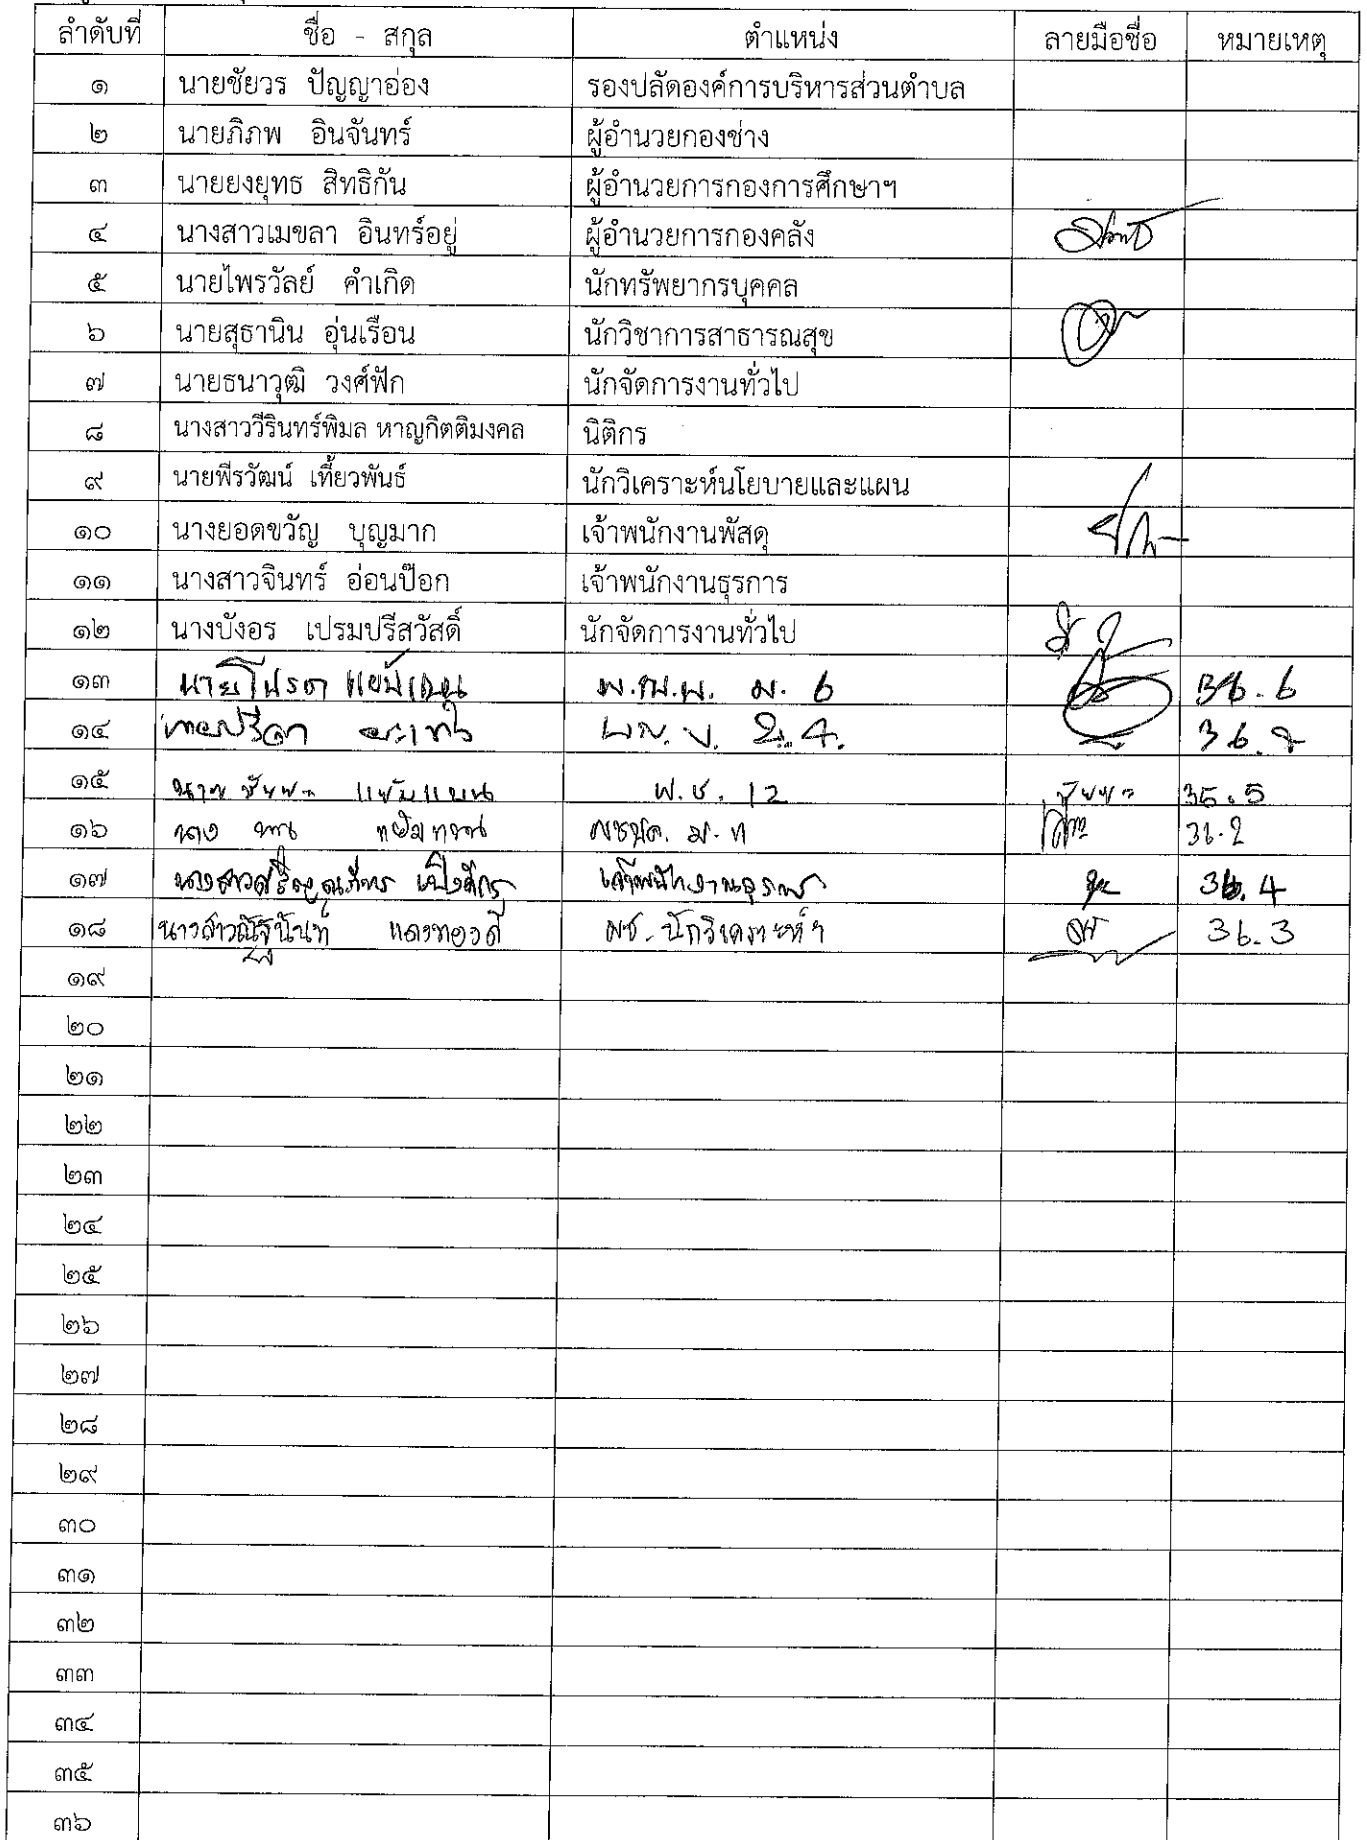 ลำดับที่ ชื่อ - สกุล ตำแหน่ง ลายมือชื่อ หมายเหตุ
๑ นายชัยวร ปัญญาอ่อง รองปลัดองค์การบริหารส่วนตำบล
๒ นายภิภพ อินจันทร์ ผู้อำนวยกองช่าง
๓ นายยงยุทธ สิทธิกัน ผู้อำนวยการกองการศึกษาฯ
๔ นางสาวเมขลา อินทร์อยู่ ผู้อำนวยการกองคลัง
๕ นายไพรวัลย์ คำเกิด นักทรัพยากรบุคคล
๖ นายสุธานิน อุ่นเรือน นักวิชาการสาธารณสุข
๗ นายธนาวุฒิ วงศ์ฟัก นักจัดการงานทั่วไป
๘ นางสาววีรินทร์พิมล หาญกิตติมงคล นิติกร
๙ นายพีรวัฒน์ เที้ยวพันธ์ นักวิเคราะห์นโยบายและแผน
๑๐ นางยอดขวัญ บุญมาก เจ้าพนักงานพัสดุ
๑๑ นางสาวจินทร์ อ่อนป๊อก เจ้าพนักงานธุรการ
๑๒ นางบังอร เปรมปรีสวัสดิ์ นักจัดการงานทั่วไป
๑๓ ม. 6 36.6
๑๔
๑๕ 12 35.5
๑๖ นาง 36.2
๑๗ 36.4
๑๘ นางสาวณัฐนันท์ แดงทองดี ผช.นักวิเคราะห์ฯ 36.3
๑๙
๒๐
๒๑
๒๒
๒๓
๒๔
๒๕
๒๖
๒๗
๒๘
๒๙
๓๐
๓๑
๓๒
๓๓
๓๔
๓๕
๓๖